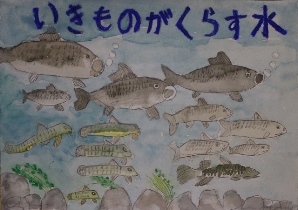 いきものがくらす水